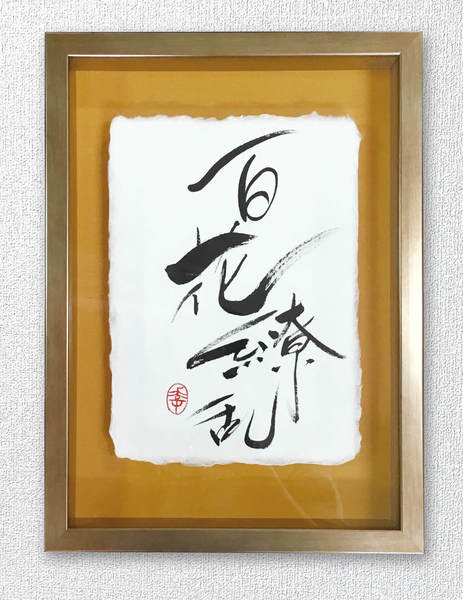 百花繚乱
幸